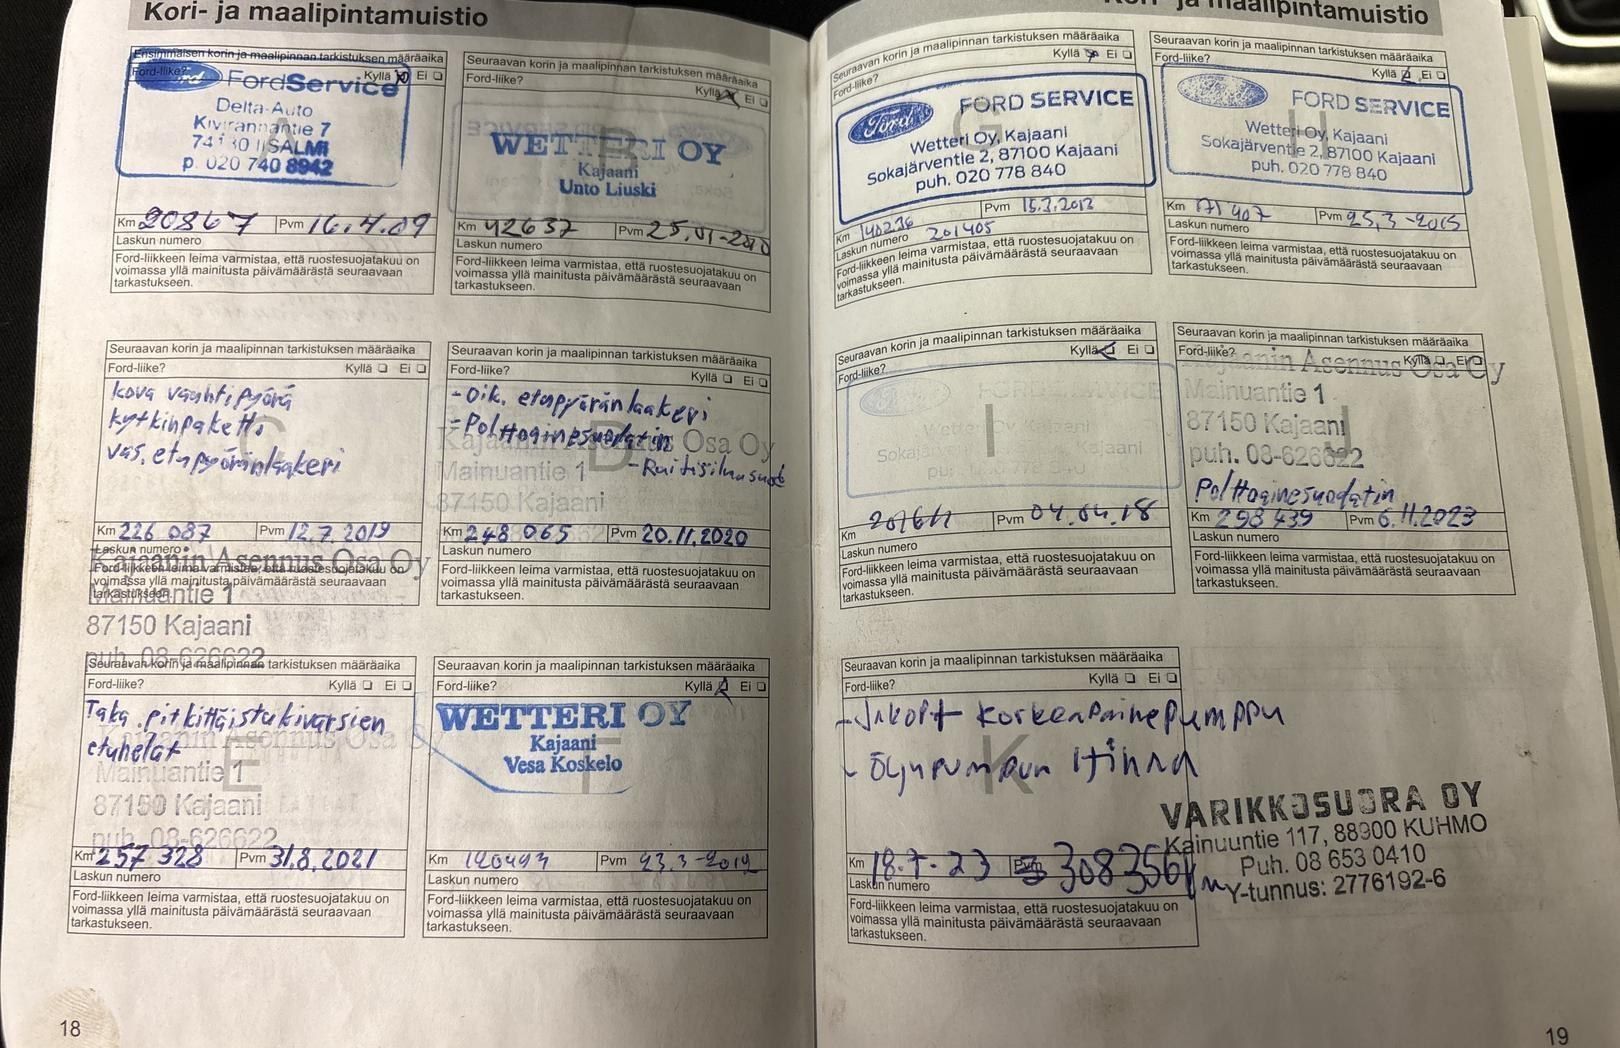 Kori- ja maalipintamuistio
Ensimmäisen korin ja maalipinnan tarkistuksen määräaika
Ford-liike? Kyllä Ei
Ford FordService
Delta-Auto
Kivirannantie 7
74130 IISALMI
p. 020 740 8942
A
Km 20867 Pvm 16.4.09
Laskun numero
Ford-liikkeen leima varmistaa, että ruostesuojatakuu on
voimassa yllä mainitusta päivämäärästä seuraavaan
tarkastukseen.
Seuraavan korin ja maalipinnan tarkistuksen määräaika
Ford-liike?
Kyllä Ei
B
WETTERI OY
Kajaani
Unto Liuski
Km 42637 Pvm 25.01-2010
Laskun numero
Ford-liikkeen leima varmistaa, että ruostesuojatakuu on
voimassa yllä mainitusta päivämäärästä seuraavaan
tarkastukseen.
Seuraavan korin ja maalipinnan tarkistuksen määräaika
Ford-liike? Kyllä Ei
C
Kova vauhtipyörä
kytkinpaketti
vas. etupyöränlaakeri
Km 226 087 Pvm 12.7.2019
Laskun numero
Kajaanin Asennus Osa Oy
Ford-liikkeen leima varmistaa, että ruostesuojatakuu on
voimassa yllä mainitusta päivämäärästä seuraavaan
tarkastukseen.
Mainuantie 1
87150 Kajaani
puh. 08-626622
Seuraavan korin ja maalipinnan tarkistuksen määräaika
Ford-liike?
Kyllä Ei
D
- Oik. etupyöränlaakeri
- Polttoainesuodatin
Kajaanin Asennus Osa Oy
Mainuantie 1
- Raitisilmasuod
87150 Kajaani
Km 248 065 Pvm 20.11.2020
Laskun numero
Ford-liikkeen leima varmistaa, että ruostesuojatakuu on
voimassa yllä mainitusta päivämäärästä seuraavaan
tarkastukseen.
Seuraavan korin ja maalipinnan tarkistuksen määräaika
Ford-liike? Kyllä Ei
Taka pitkittäistukivarsien
etuhelat
Kajaanin Asennus Osa Oy
E
Mainuantie 1
87150 Kajaani
puh. 08-626622
Km 257 328 Pvm 31.8.2021
Laskun numero
Ford-liikkeen leima varmistaa, että ruostesuojatakuu on
voimassa yllä mainitusta päivämäärästä seuraavaan
tarkastukseen.
Seuraavan korin ja maalipinnan tarkistuksen määräaika
Ford-liike? Kyllä Ei
WETTERI OY
Kajaani
Vesa Koskelo
F
Km Pvm
Laskun numero
Ford-liikkeen leima varmistaa, että ruostesuojatakuu on
voimassa yllä mainitusta päivämäärästä seuraavaan
tarkastukseen.
18
Kori- ja maalipintamuistio
Seuraavan korin ja maalipinnan tarkistuksen määräaika
Ford-liike? Kyllä Ei
G
Ford FORD SERVICE
Wetteri Oy, Kajaani
Sokajärventie 2, 87100 Kajaani
puh. 020 778 840
Km 140236 Pvm 15.3.2013
Laskun numero 201405
Ford-liikkeen leima varmistaa, että ruostesuojatakuu on
voimassa yllä mainitusta päivämäärästä seuraavaan
tarkastukseen.
Seuraavan korin ja maalipinnan tarkistuksen määräaika
Ford-liike?
Kyllä Ei
H
FORD SERVICE
Wetteri Oy, Kajaani
Sokajärventie 2, 87100 Kajaani
puh. 020 778 840
Km 171 407 Pvm 25,3-2015
Laskun numero
Ford-liikkeen leima varmistaa, että ruostesuojatakuu on
voimassa yllä mainitusta päivämäärästä seuraavaan
tarkastukseen.
Seuraavan korin ja maalipinnan tarkistuksen määräaika
Kyllä Ei
Ford-liike?
I
FORD SERVICE
Wetteri Oy, Kajaani
Kajaani
puh. 020 778 840
Km Pvm 04.04.18
Laskun numero
Ford-liikkeen leima varmistaa, että ruostesuojatakuu on
voimassa yllä mainitusta päivämäärästä seuraavaan
tarkastukseen.
Seuraavan korin ja maalipinnan tarkistuksen määräaika
Ford-liike? Kyllä Ei
Kajaanin Asennus Osa Oy
Mainuantie 1
87150 Kajaani
puh. 08-626622
J
Polttoainesuodatin
Km 298 439 Pvm 6.11.2023
Laskun numero
Ford-liikkeen leima varmistaa, että ruostesuojatakuu on
voimassa yllä mainitusta päivämäärästä seuraavaan
tarkastukseen.
Seuraavan korin ja maalipinnan tarkistuksen määräaika
Ford-liike? Kyllä Ei
K
- Jakopt Korkeapainepumppu
- Öljypumpun Hihna
VARIKKOSUORA OY
Kainuuntie 117, 88900 KUHMO
Puh. 08 653 0410
Y-tunnus: 2776192-6
Km 18.7-23 Pvm 308356
Laskun numero
Ford-liikkeen leima varmistaa, että ruostesuojatakuu on
voimassa yllä mainitusta päivämäärästä seuraavaan
tarkastukseen.
19